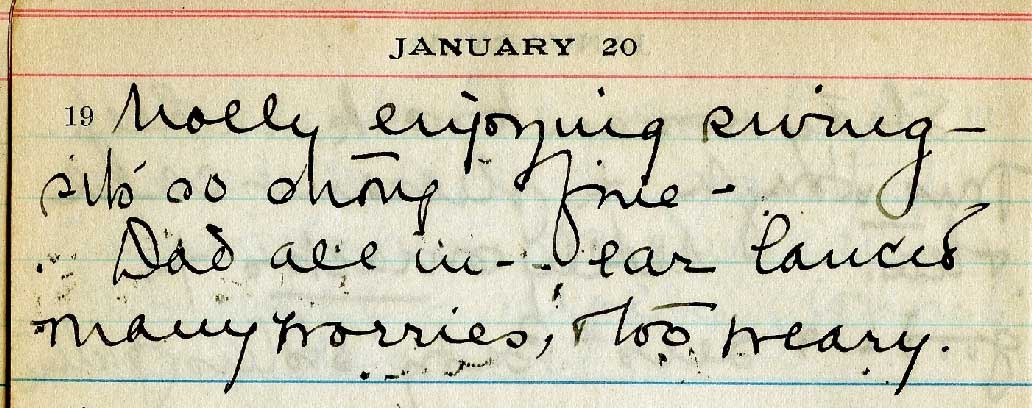 JANUARY 20
19 Molly enjoying swing -
sits so strong & fine -
Dad all in - . ear lanced
many worries, & too weary.